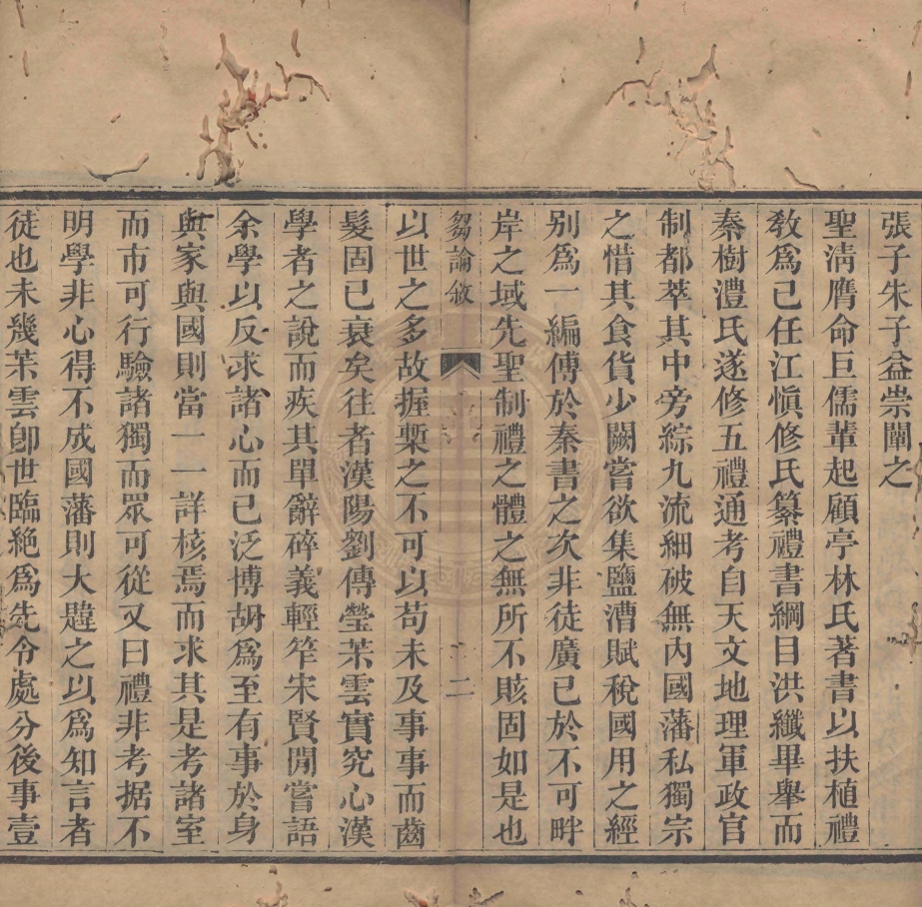 張子朱子益崇闡之
聖淸膺命巨儒輩起顧亭林氏著書以扶植禮
敎爲己任江愼修氏纂禮書綱目洪纖畢舉而
秦樹澧氏遂修五禮通考自天文地理軍政官
制都萃其中旁綜九流細破無內國藩私獨宗
之惜其食貨少闕嘗欲集鹽漕賦稅國用之經
別爲一編傅於秦書之次非徒廣己於不可畔
岸之域先聖制禮之體之無所不賅固如是也
芻論敘
二
以世之多故握槧之不可以苟未及事事而齒
髮固已衰矣往者漢陽劉傳瑩茮雲實究心漢
學者之說而疾其單辭碎義輕笮宋賢閒嘗語
余學以反求諸心而已泛博胡爲至有事於身
與家與國則當一一詳核焉而求其是考諸室
而市可行驗諸獨而眾可從又曰禮非考据不
明學非心得不成國藩則大韙之以爲知言者
徒也未幾茮雲卽世臨絕爲先令處分後事壹